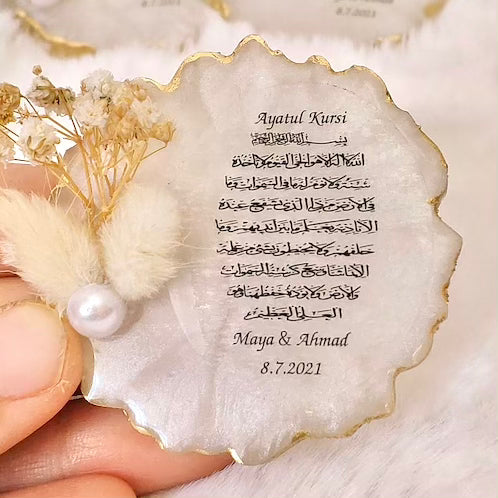 8.7.2021
Ayatul Kursi
بسم الله الرحمن الرحيم
الله لا اله الا هو الحي القيوم لا تاخذه
سنة ولا نوم له ما في السموات وما
في الارض من ذا الذي يشفع عنده
الا باذنه يعلم ما بين ايديهم وما
خلفهم ولا يحيطون بشيء من علمه
الا بما شاء وسع كرسيه السموات
والارض ولا يؤده حفظهما وهو
العلي العظيم
Maya & Ahmad
8.7.2021